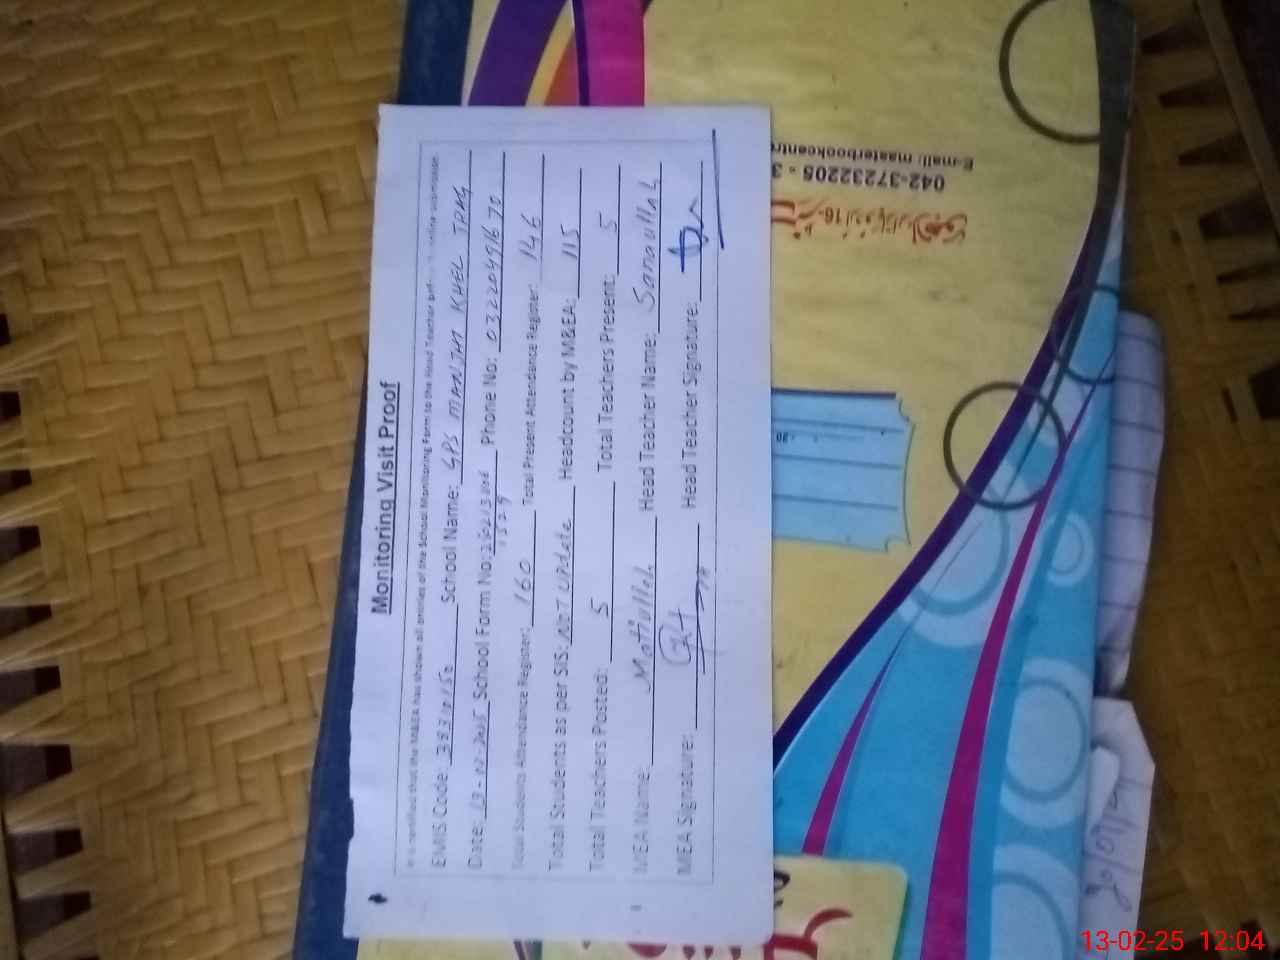 Monitoring Visit Proof
It is certified that the M&EA has shown all entries of the School Monitoring Form to the Head Teacher before online submission.
EMIS Code: School Name: GPS MANJHI KHEL TPNG
Date: 13-02-2025 School Form No: Phone No: 03220491670
Total Students Attendance Register: 160 Total Present Attendance Register: 146
Total Students as per SIS: NOT UPdate Headcount by M&EA: 115
Total Teachers Posted: 5 Total Teachers Present: 5
MEA Name: Matiullah Head Teacher Name: Sanaullah
MEA Signature: Head Teacher Signature:
042-37232205 - 3
E-mail: masterbookcentre
13-02-25 12:04